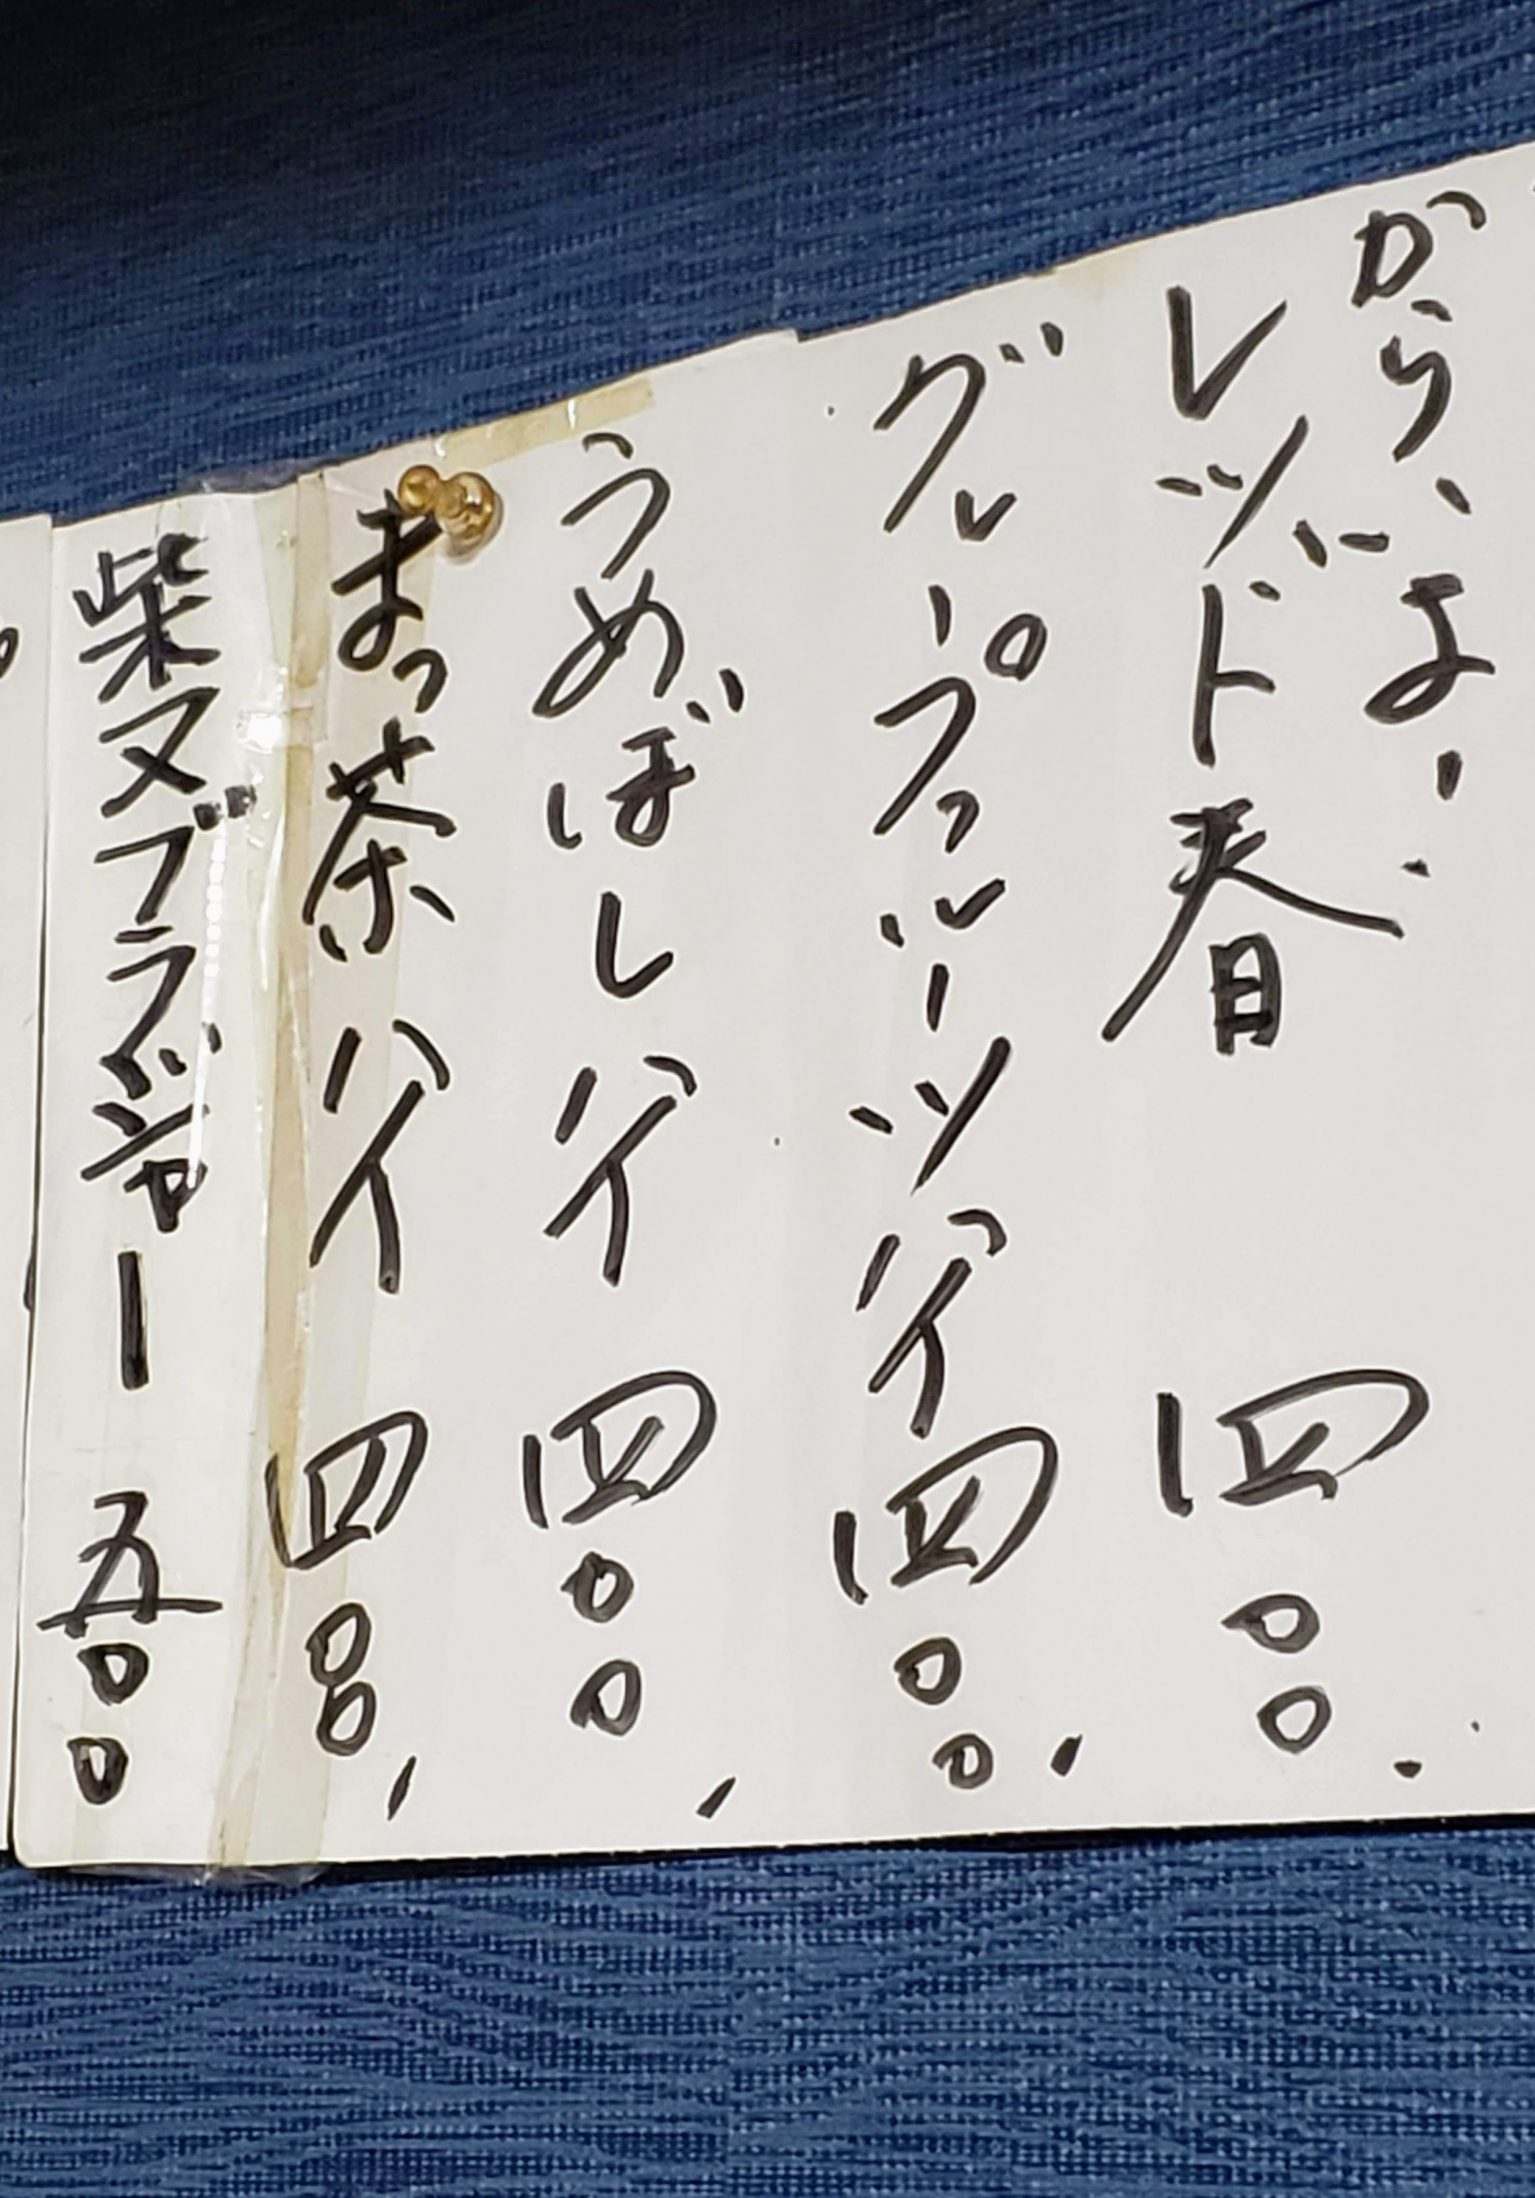 から、よ!
レッド春 四〇〇.
グレープフルーツハイ 四〇〇,
うめぼしハイ 四〇〇,
まっ茶ハイ 四〇〇,
柴又ブラジャー 五〇〇